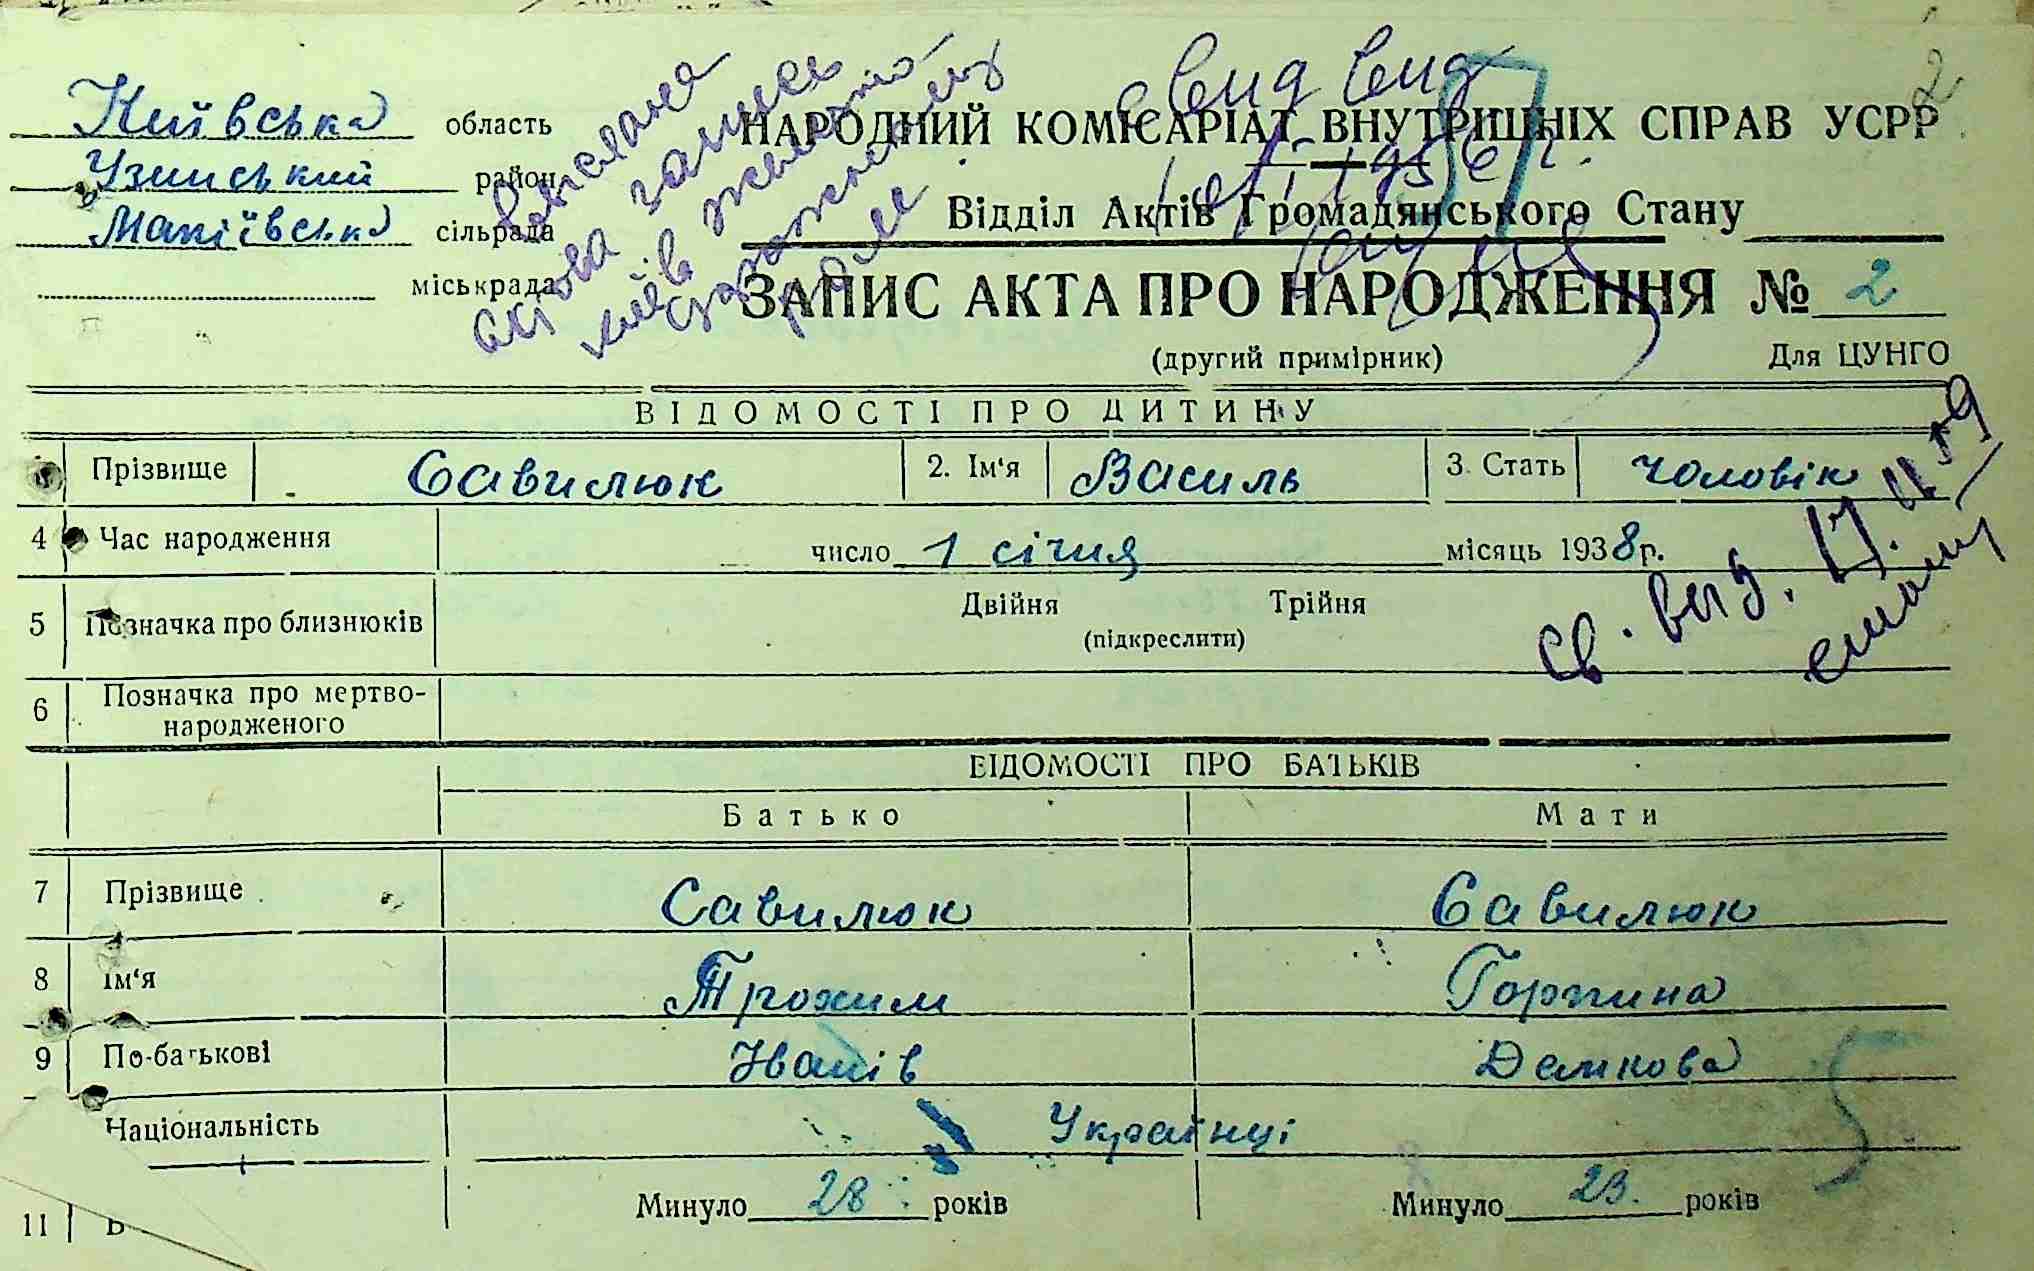 Київська область
Узинський район
Макіївська сільрада
міськрада
НАРОДНИЙ КОМІСАРІАТ ВНУТРІШНІХ СПРАВ УСРР
Відділ Актів Громадянського Стану
ЗАПИС АКТА ПРО НАРОДЖЕННЯ № 2
(другий примірник)
Для ЦУНГО
вислана
актова запись
Київ
1956 г.
2
ВІДОМОСТІ ПРО ДИТИНУ
Прізвище Савилюк 2. Ім'я Василь 3. Стать чоловік
4 Час народження число 1 січня місяць 1938 р.
св. выд. 17
5 Позначка про близнюків Двійня Трійня
(підкреслити)
6 Позначка про мертво-
народженого
ВІДОМОСТІ ПРО БАТЬКІВ
Батько Мати
7 Прізвище Савилюк Савилюк
8 Ім'я Трохим Горпина
9 По-батькові Іванів Демкова
Національність Українці
11 В Минуло 28 років Минуло 23. років
5